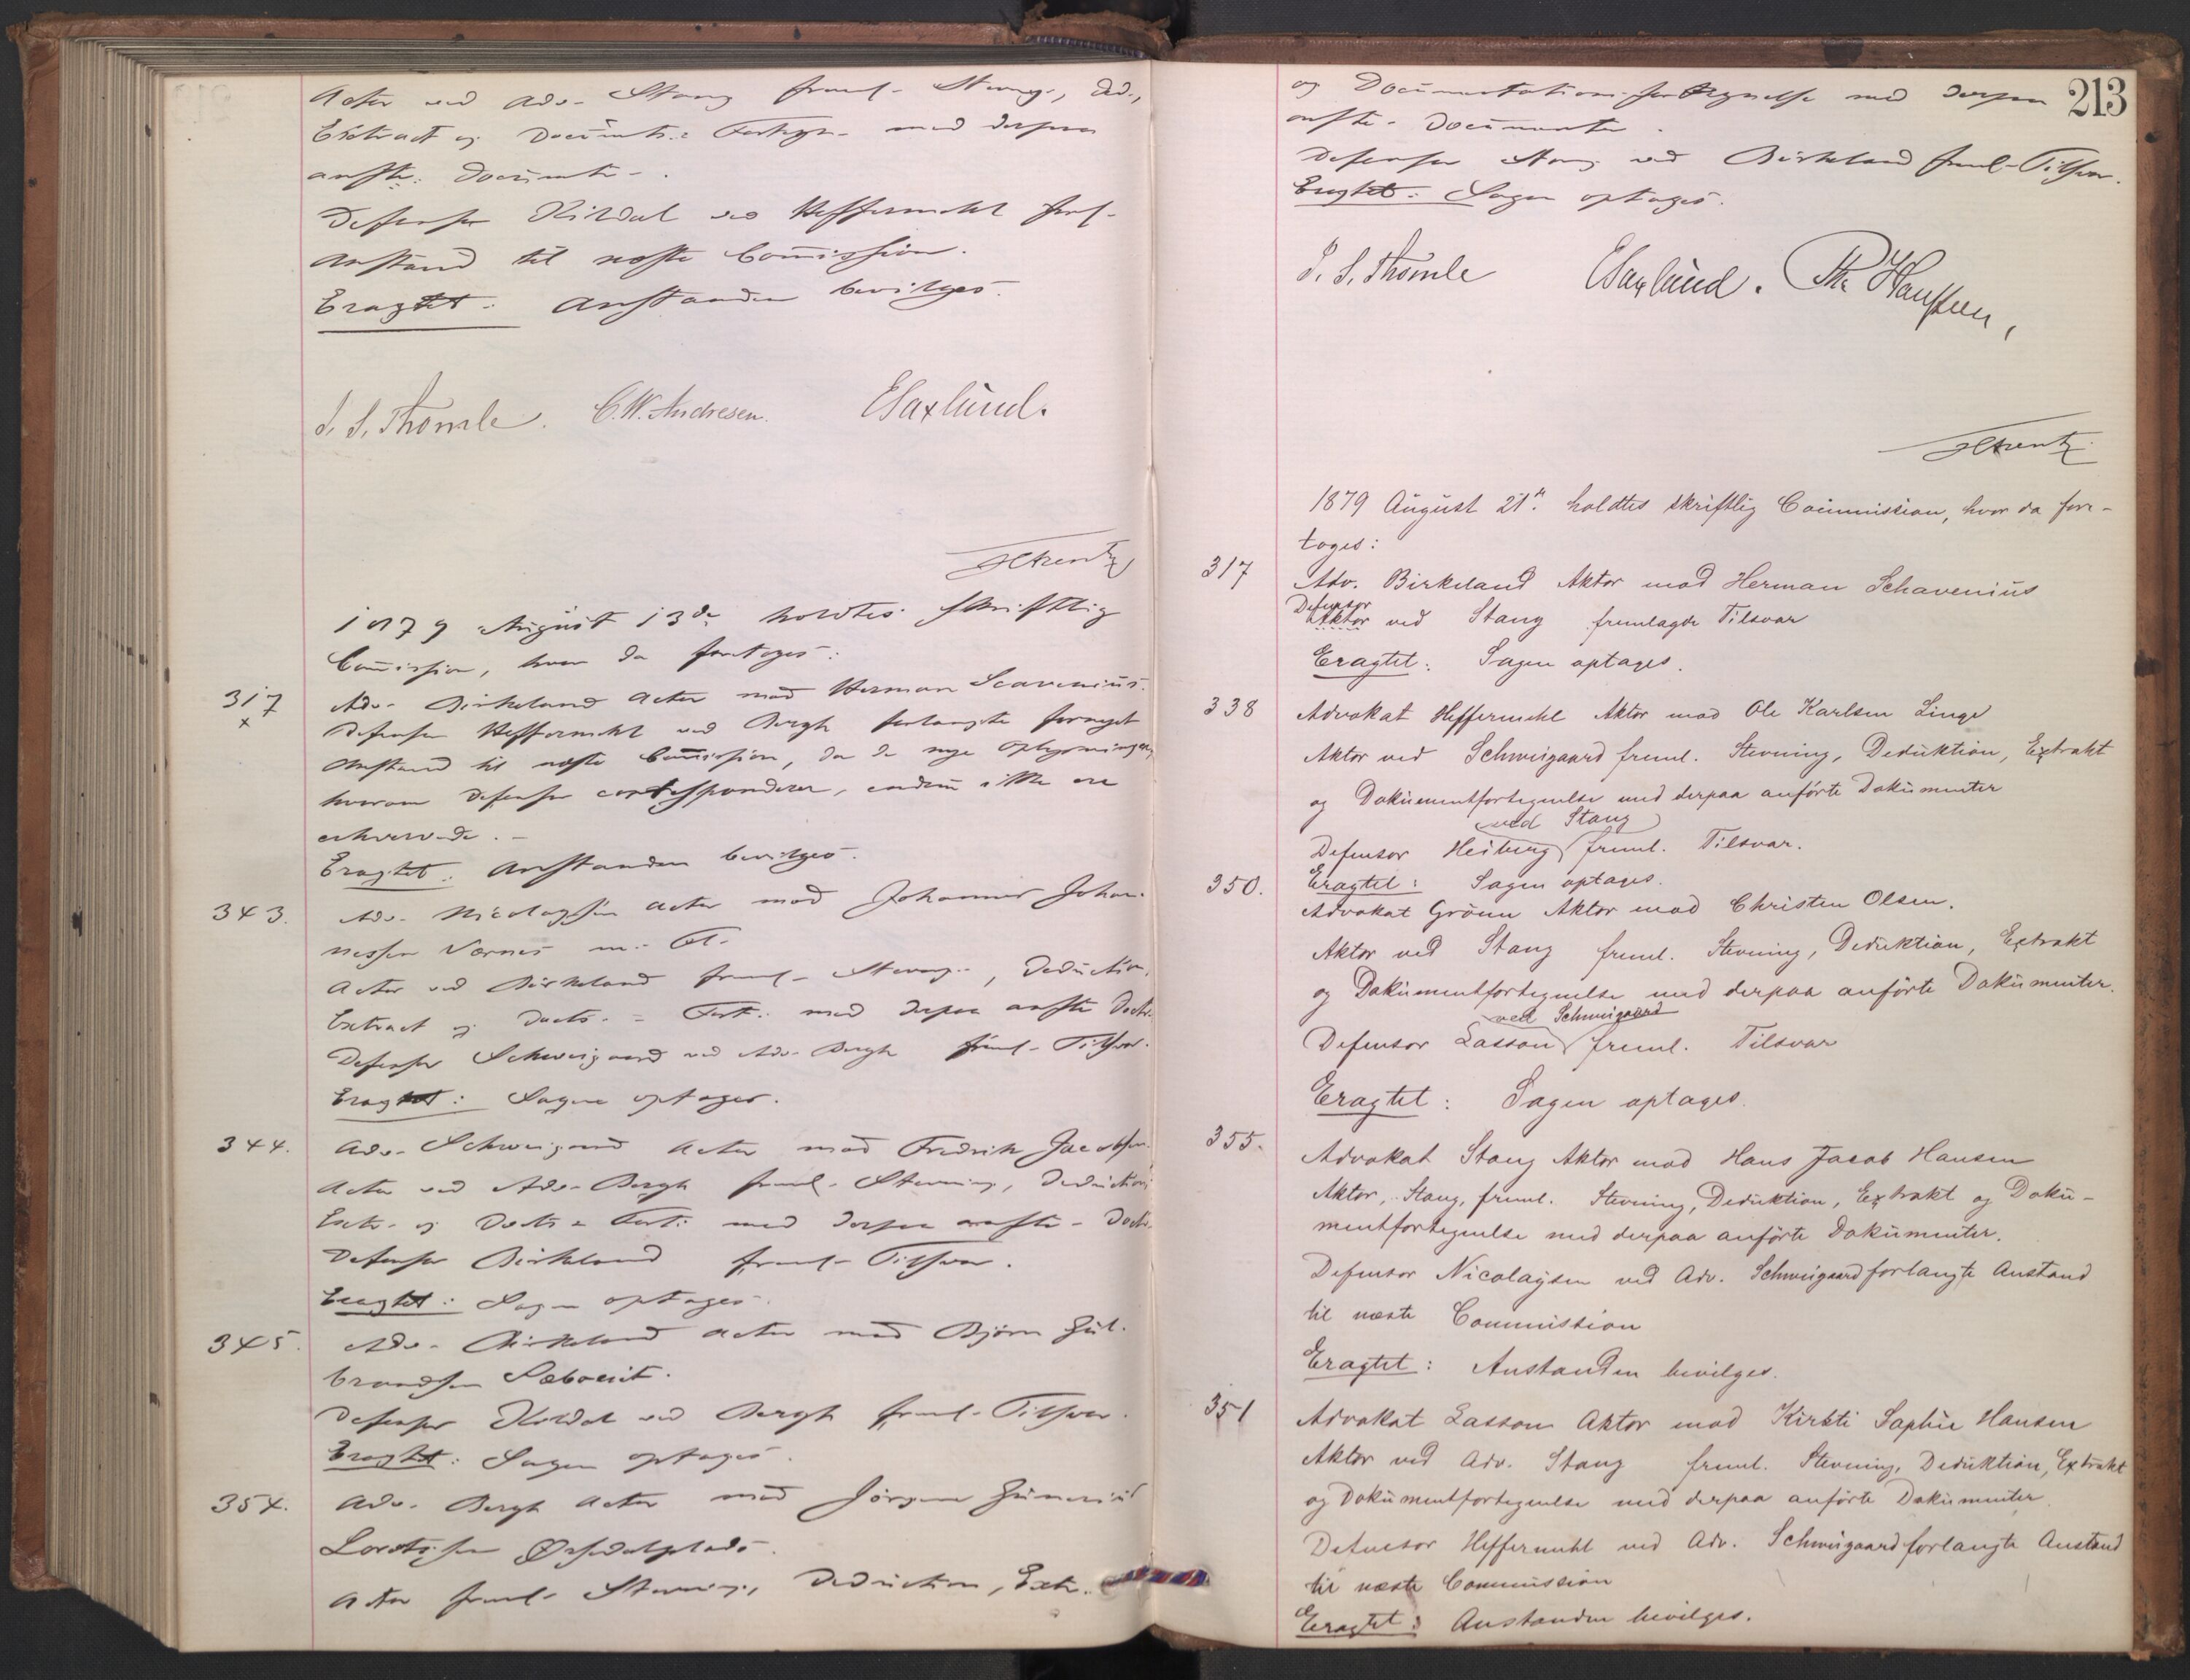 Actor ved Adv. Stang freml. Stevng., Ded.,
Extract og Documts.: Fortegn. med derpaa
anfte. Documenter.
Defensor Kildal ved Heffermehl forl.
Anstand til næste Commission.
Eragtet: Anstanden bevilges.
I. S. Thomle. C. W. Andresen. E Saxlund.
1879 August 13de holdtes skriftlig
Commission, hvor da foretoges:
317
x
Adv. Birkeland Actor mod Herman Scavenius.
Defensor Heffermehl ved Bergh forlangte fornyet
Anstand til næste Commission, da de nye Oplysninger,
hvorom Defensor correspoderer, endnu ikke ere
erhvervede.
Eragtet: Anstanden bevilges.
343.
Adv. Nicolaysen Actor mod Johannes Johan-
nessen Værnes m. Fl.
Actor ved Birkeland freml. Stevng., Deduction,
Extract og Docts. = Fort. med derpaa anfte Docts.
Defensor Schweigaard ved Adv. Bergh freml. Tilsvar.
Eragtet: Sagen optages.
344.
Adv. Schweigaard Actor mod Fredrik Jacobsen.
Actor ved Adv. Bergh freml. Stevning, Deduction
Extr. og Docts = Fort: med derpaa anfte. Docts.
Defensor Birkeland freml. Tilsvar.
Eragtet: Sagen optages.
345.
Adv. Birkeland Actor mod Bjørn Gul-
brandsen
Defensor Kildal ved Bergh freml. Tilsvar.
Eragtet: Sagen optages.
354.
Adv. Bergh Actor mod Jørgen
Actor freml. Stevning, Deduction, Extr.
213
og Documentationsfortegnelse med derpaa
anfte. Documenter.
Defensor Stang ved Birkeland freml. Tilsvar.
Eragtet: Sagen optages.
I. S. Thomle E Saxlund. Th. Hansteen,
1879 August 21de holdtes skriftlig Commission, hvor da fore-
toges:
317
Adv. Birkeland Aktor mod Herman Schavenius
Defensor
Aktor ved Stang fremlagde Tilsvar
Eragtet: Sagen optages.
338
Advokat Heffermehl Aktor mod Ole Karlsen Linge
Aktor ved Schweigaard freml. Stevning, Deduktion, Extrakt
og Dokumentfortegnelse med derpaa anförte Dokumenter
ved Stang
Defensor Heiberg freml. Tilsvar.
Eragtet: Sagen optages.
350.
Advokat Grönn Aktor mod Christen Olsen.
Aktor ved Stang freml. Stevning, Deduktion, Extrakt
og Dokumentfortegnelse med derpaa anförte Dokumenter.
ved Schweigaard
Defensor Lasson freml. Tilsvar
Eragtet: Sagen optages.
355.
Advokat Stang Aktor mod Hans Jacob Hansen
Aktor, Stang, freml. Stevning, Deduktion, Extrakt og Doku-
mentfortegnelse med derpaa anförte Dokumenter.
Defensor Nicolaysen ved Adv. Schweigaard forlangte Anstand
til næste Commission
Eragtet: Anstanden bevilges.
351
Advokat Lasson Aktor mod Kirsti Sophie Hansen
Aktor ved Adv. Stang freml. Stevning, Deduktion, Extrakt
og Dokumentfortegnelse med derpaa anförte Dokumenter.
Defensor Heffermehl ved Adv. Schweigaard forlangte Anstand
til næste Commission
Eragtet: Anstanden bevilges.